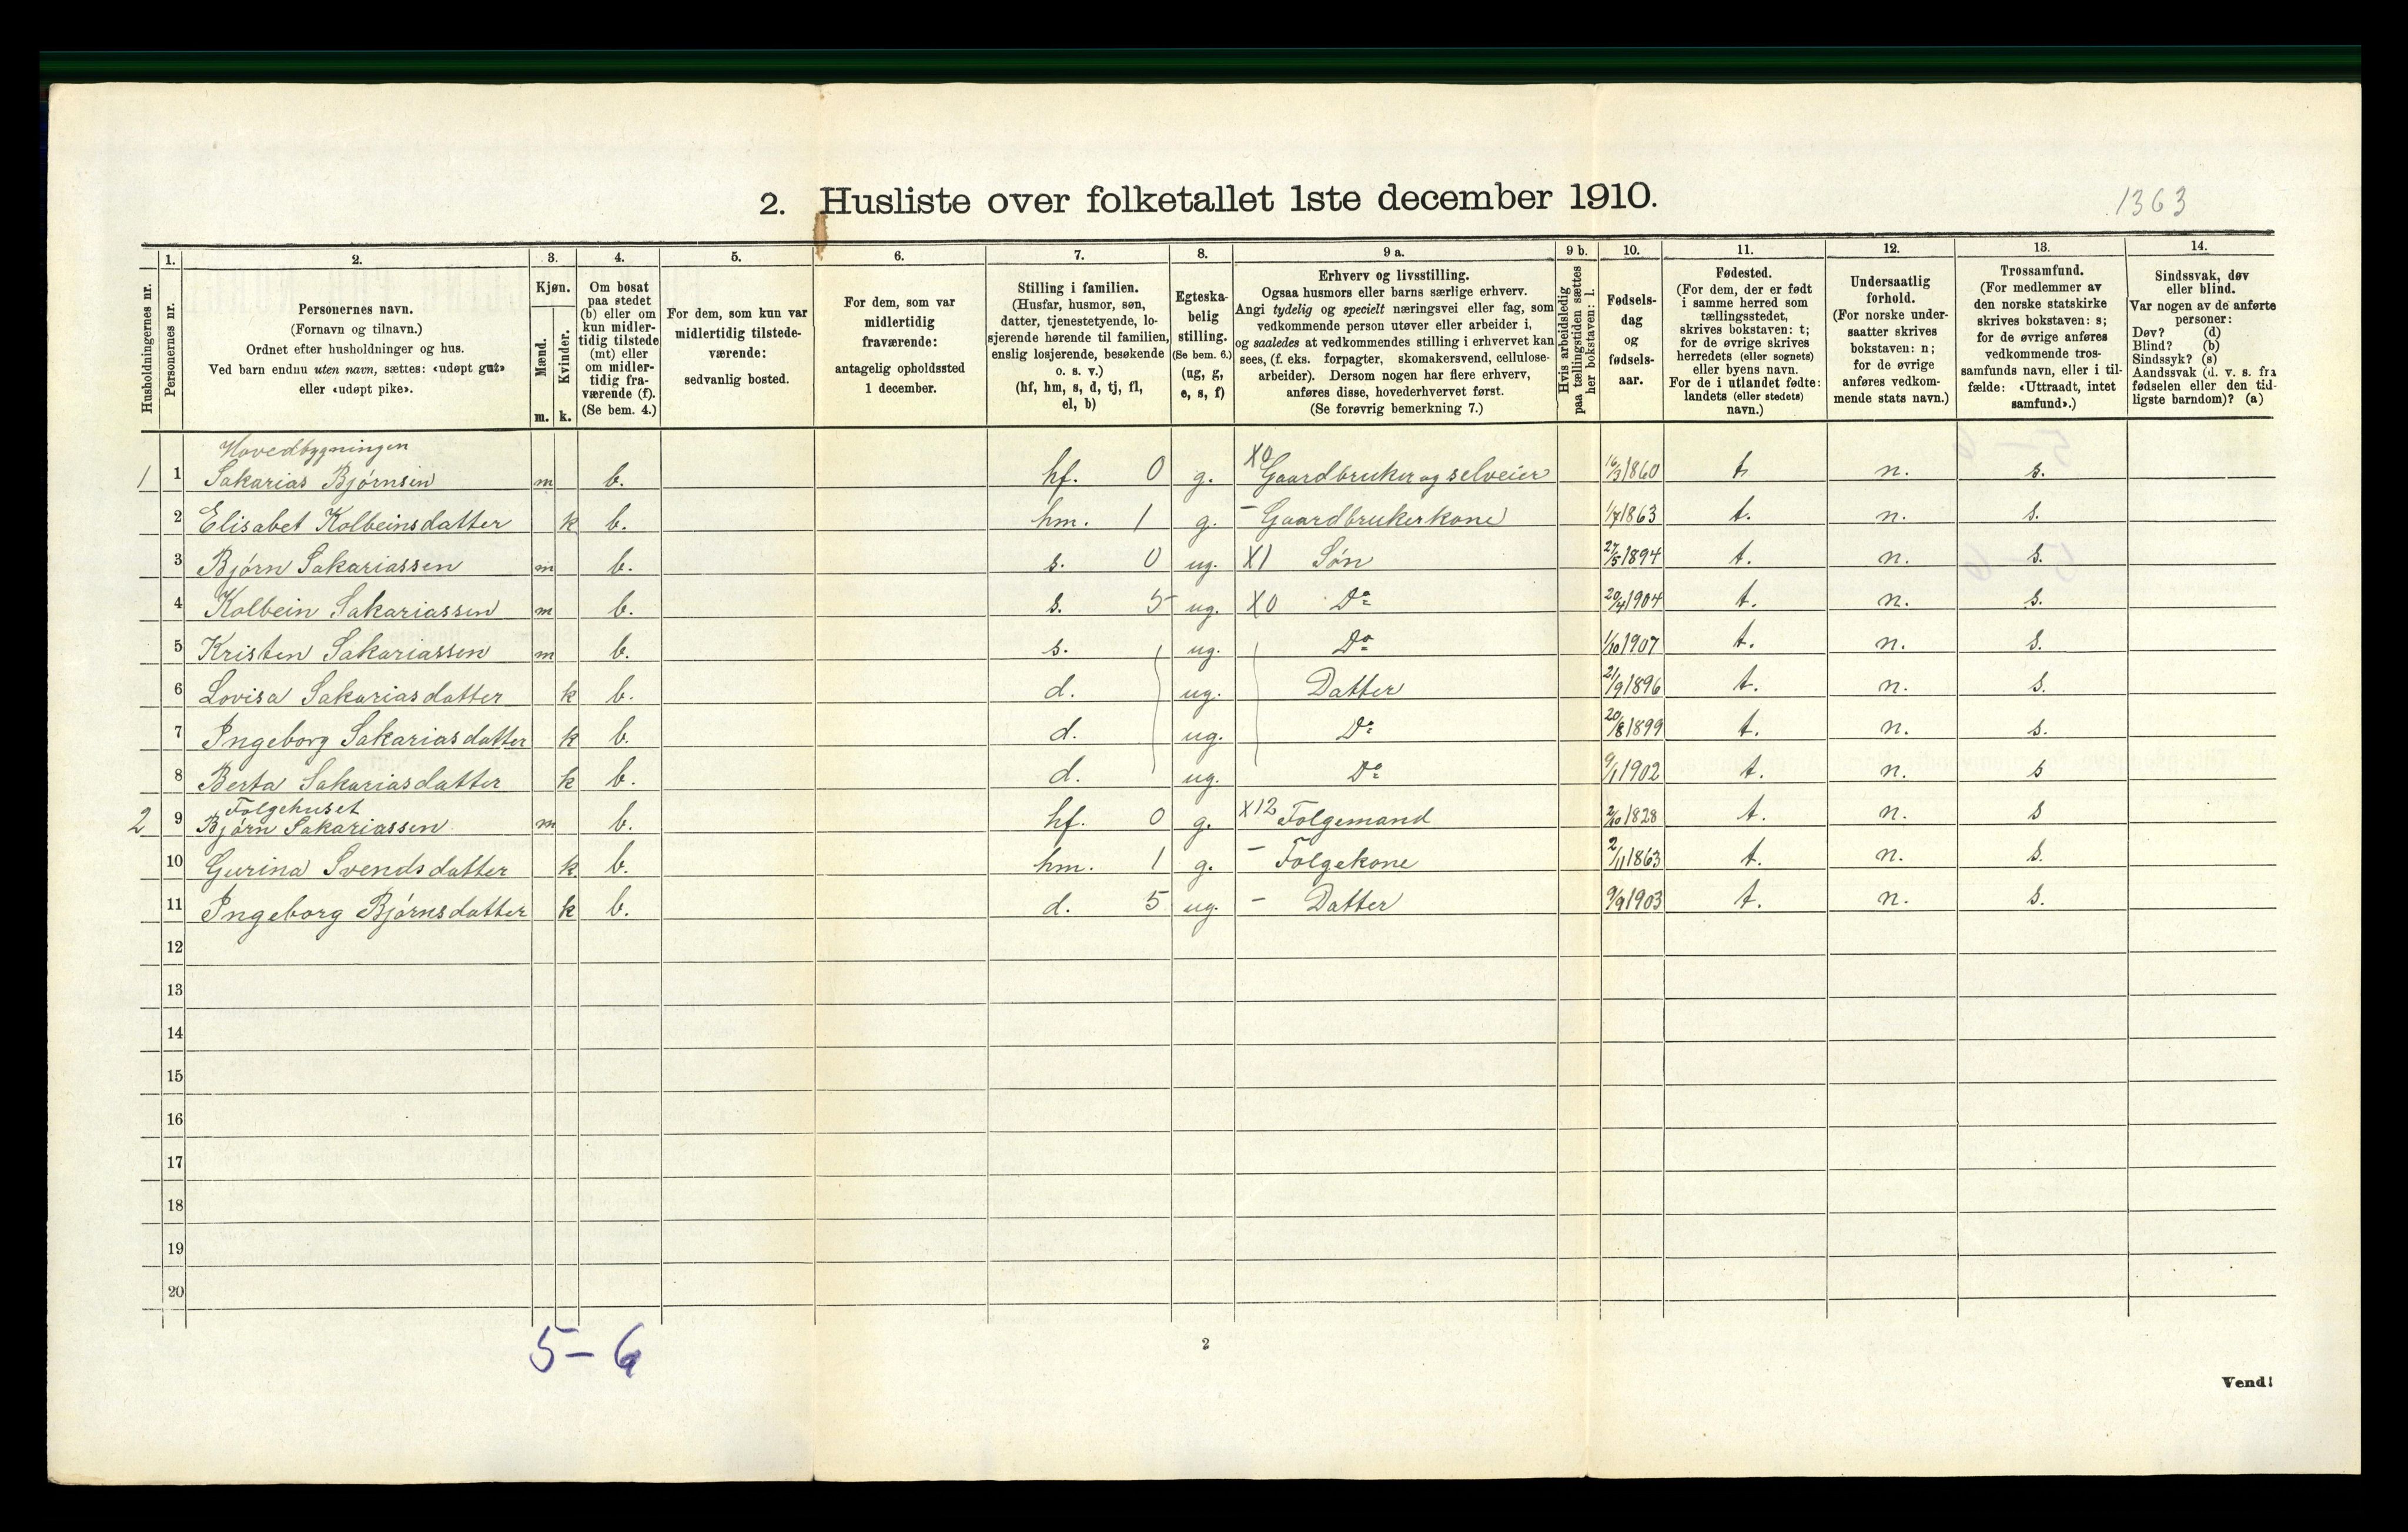 2. Husliste over folketallet 1ste december 1910.
1363
Husholdningernes nr.
1.
Personernes nr.
2.
Personernes navn.
(Fornavn og tilnavn.)
Ordnet efter husholdninger og hus.
Ved barn endnu uten navn, sættes: «udøpt gut»
eller «udøpt pike».
3.
Kjøn.
Mænd.
m.
Kvinder.
k.
4.
Om bosat
paa stedet
(b) eller om
kun midler-
tidig tilstede
(mt) eller
om midler-
tidig fra-
værende (f).
(Se bem. 4.)
5.
For dem, som kun var
midlertidig tilstede-
værende:
sedvanlig bosted.
6.
For dem, som var
midlertidig
fraværende:
antagelig opholdssted
1 december.
7.
Stilling i familien.
(Husfar, husmor, søn,
datter, tjenestetyende, lo-
sjerende hørende til familien,
enslig losjerende, besøkende
o. s. v.)
(hf, hm, s, d, tj, fl,
el, b)
8.
Egteska-
belig
stilling.
(Se bem. 6.)
(ug, g,
e, s, f)
9 a.
Erhverv og livsstilling.
Ogsaa husmors eller barns særlige erhverv.
Angi tydelig og specielt næringsvei eller fag, som
vedkommende person utøver eller arbeider i,
og saaledes at vedkommendes stilling i erhvervet kan
sees, (f. eks. forpagter, skomakersvend, cellulose-
arbeider). Dersom nogen har flere erhverv,
anføres disse, hovederhvervet først.
(Se forøvrig bemerkning 7.)
9 b.
Hvis arbeidsledig
paa tællingstiden sættes
her bokstaven: l.
10.
Fødsels-
dag
og
fødsels-
aar.
11.
Fødested.
(For dem, der er født
i samme herred som
tællingsstedet,
skrives bokstaven: t;
for de øvrige skrives
herredets (eller sognets)
eller byens navn.
For de i utlandet fødte:
landets (eller stedets)
navn.)
12.
Undersaatlig
forhold.
(For norske under-
saatter skrives
bokstaven: n;
for de øvrige
anføres vedkom-
mende stats navn.)
13.
Trossamfund.
(For medlemmer av
den norske statskirke
skrives bokstaven: s;
for de øvrige anføres
vedkommende tros-
samfunds navn, eller i til-
fælde: «Uttraadt, intet
samfund».)
14.
Sindssvak, døv
eller blind.
Var nogen av de anførte
personer:
Døv? (d)
Blind? (b)
Sindssyk? (s)
Aandssvak (d. v. s. fra
fødselen eller den tid-
ligste barndom)? (a)
Hovedbygningen
1 1 Sakarias Bjørnsen m b. hf. 0 g. X0 Gaardbruker og selveier 16/3 1860 t. n. s.
2 Elisabet Kolbeinsdatter k b. hm. 1 g. - Gaardbrukerkone 1/7 1863 t. n. s.
3 Bjørn Sakariassen m b. s. 0 ug. X1 Søn 27/5 1894 t. n. s.
4 Kolbein Sakariassen m b. s. 5 ug. X0 Do 20/4 1904 t. n. s.
5 Kristen Sakariassen m b. s. ug. Do 1/10 1907 t. n. s.
6 Lovisa Sakariasdatter k b. d. ug. Datter 21/9 1896 t. n. s.
7 Ingeborg Sakariasdatter k b. d. ug. Do 20/8 1899 t. n. s.
8 Berta Sakariasdatter k b. d. ug. Do 9/1 1902 t. n. s
Folgehuset
2 9 Bjørn Sakariassen m b. hf. 0 g. X12 Folgemand 2/10 1828 t. n. s
10 Gurina Svendsdatter k. b. hm. 1 g. - Folgekone 2/11 1863 t. n. s.
11 Ingeborg Bjørnsdatter k b. d. 5 ug. - Datter 9/9 1903 t. n. s.
12
13
14
15
16
17
18
19
20
5-6
2
Vend!